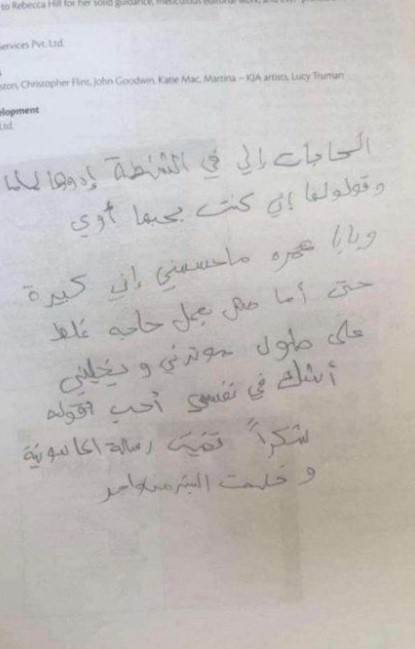 to Rebecca Hill for her solid guidance, meticulous editorial work, and
Services Pvt. Ltd.
ston, Christopher Flint, John Goodwin, Katie Mac, Martina – KJA artists, Lucy Truman
elopment
Ltd.
الحاجات إلي في الشنطة إدوها لماما
وقولولها إني كنت بحبها أوي
وبابا عمره ماحسسني إني كبيرة
حتى أما بعمل حاجه غلط
على طول و يخليني
أشك في نفسي أحب أقوله
شكراً رسالة
و خلصت